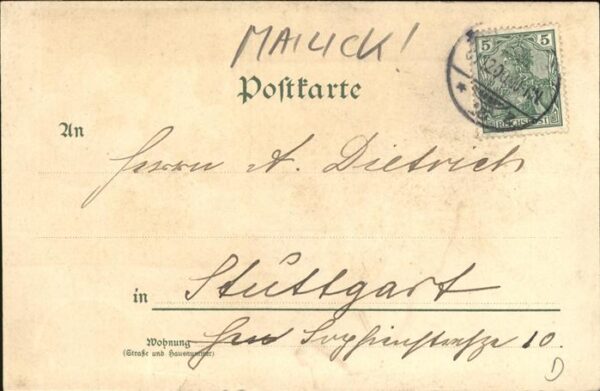 MAILICK!
5 5
REICHSPOST
Postkarte
An
Herrn A. Dietrich
in Stuttgart
Wohnung Sophienstraße 10.
(Straße und Hausnummer)